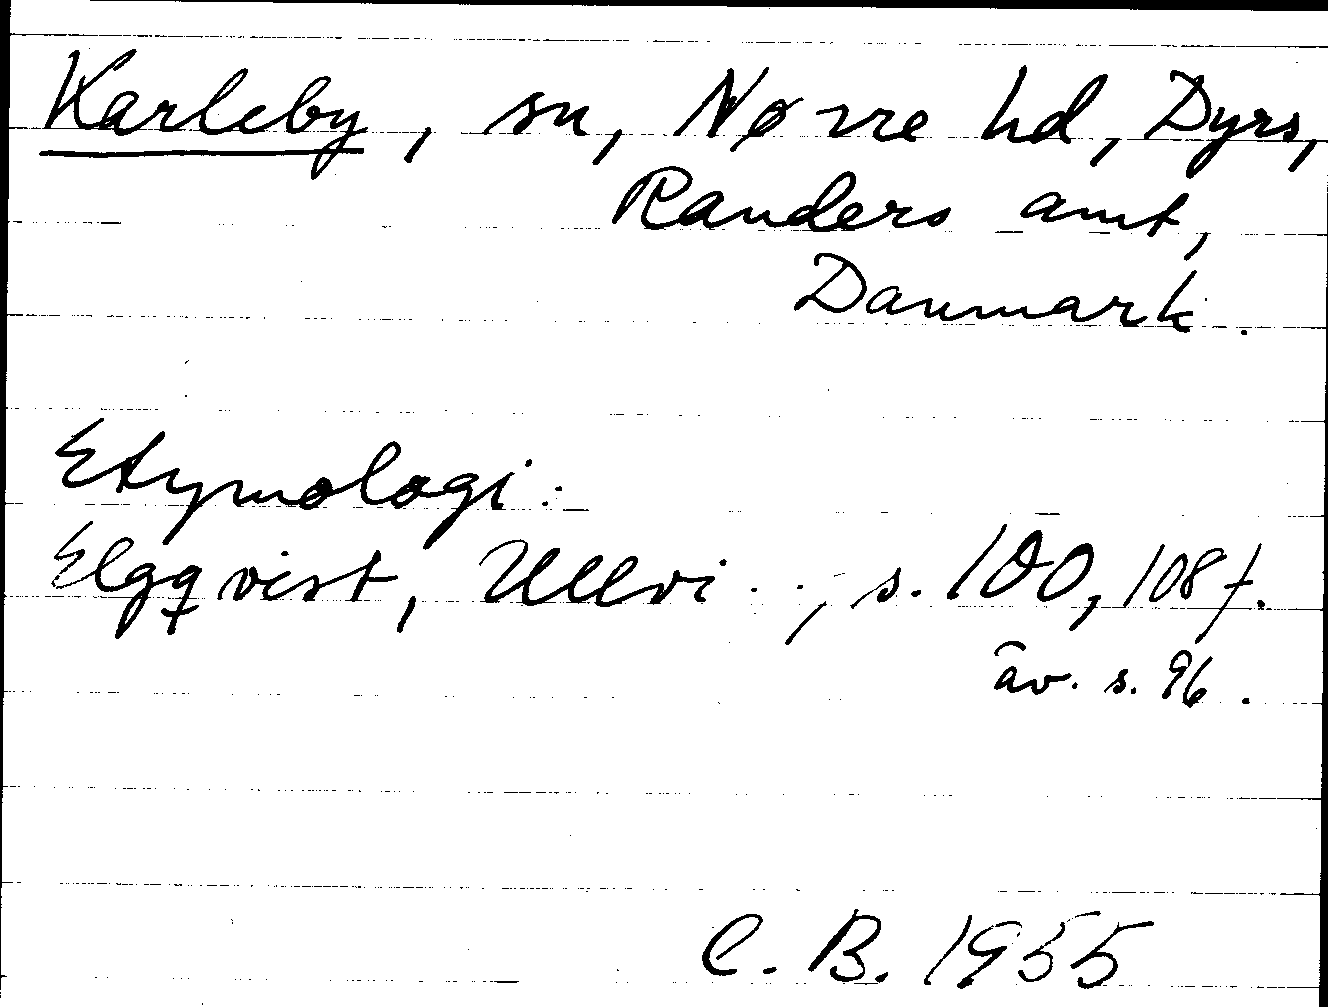 Karleby, sn, Nørre hd, Dyrs,
Randers amt,
Danmark.
Etymologi:
Elgqvist, Ullvi..., s. 100, 108 f.
äv. s. 96.
C. B. 1955